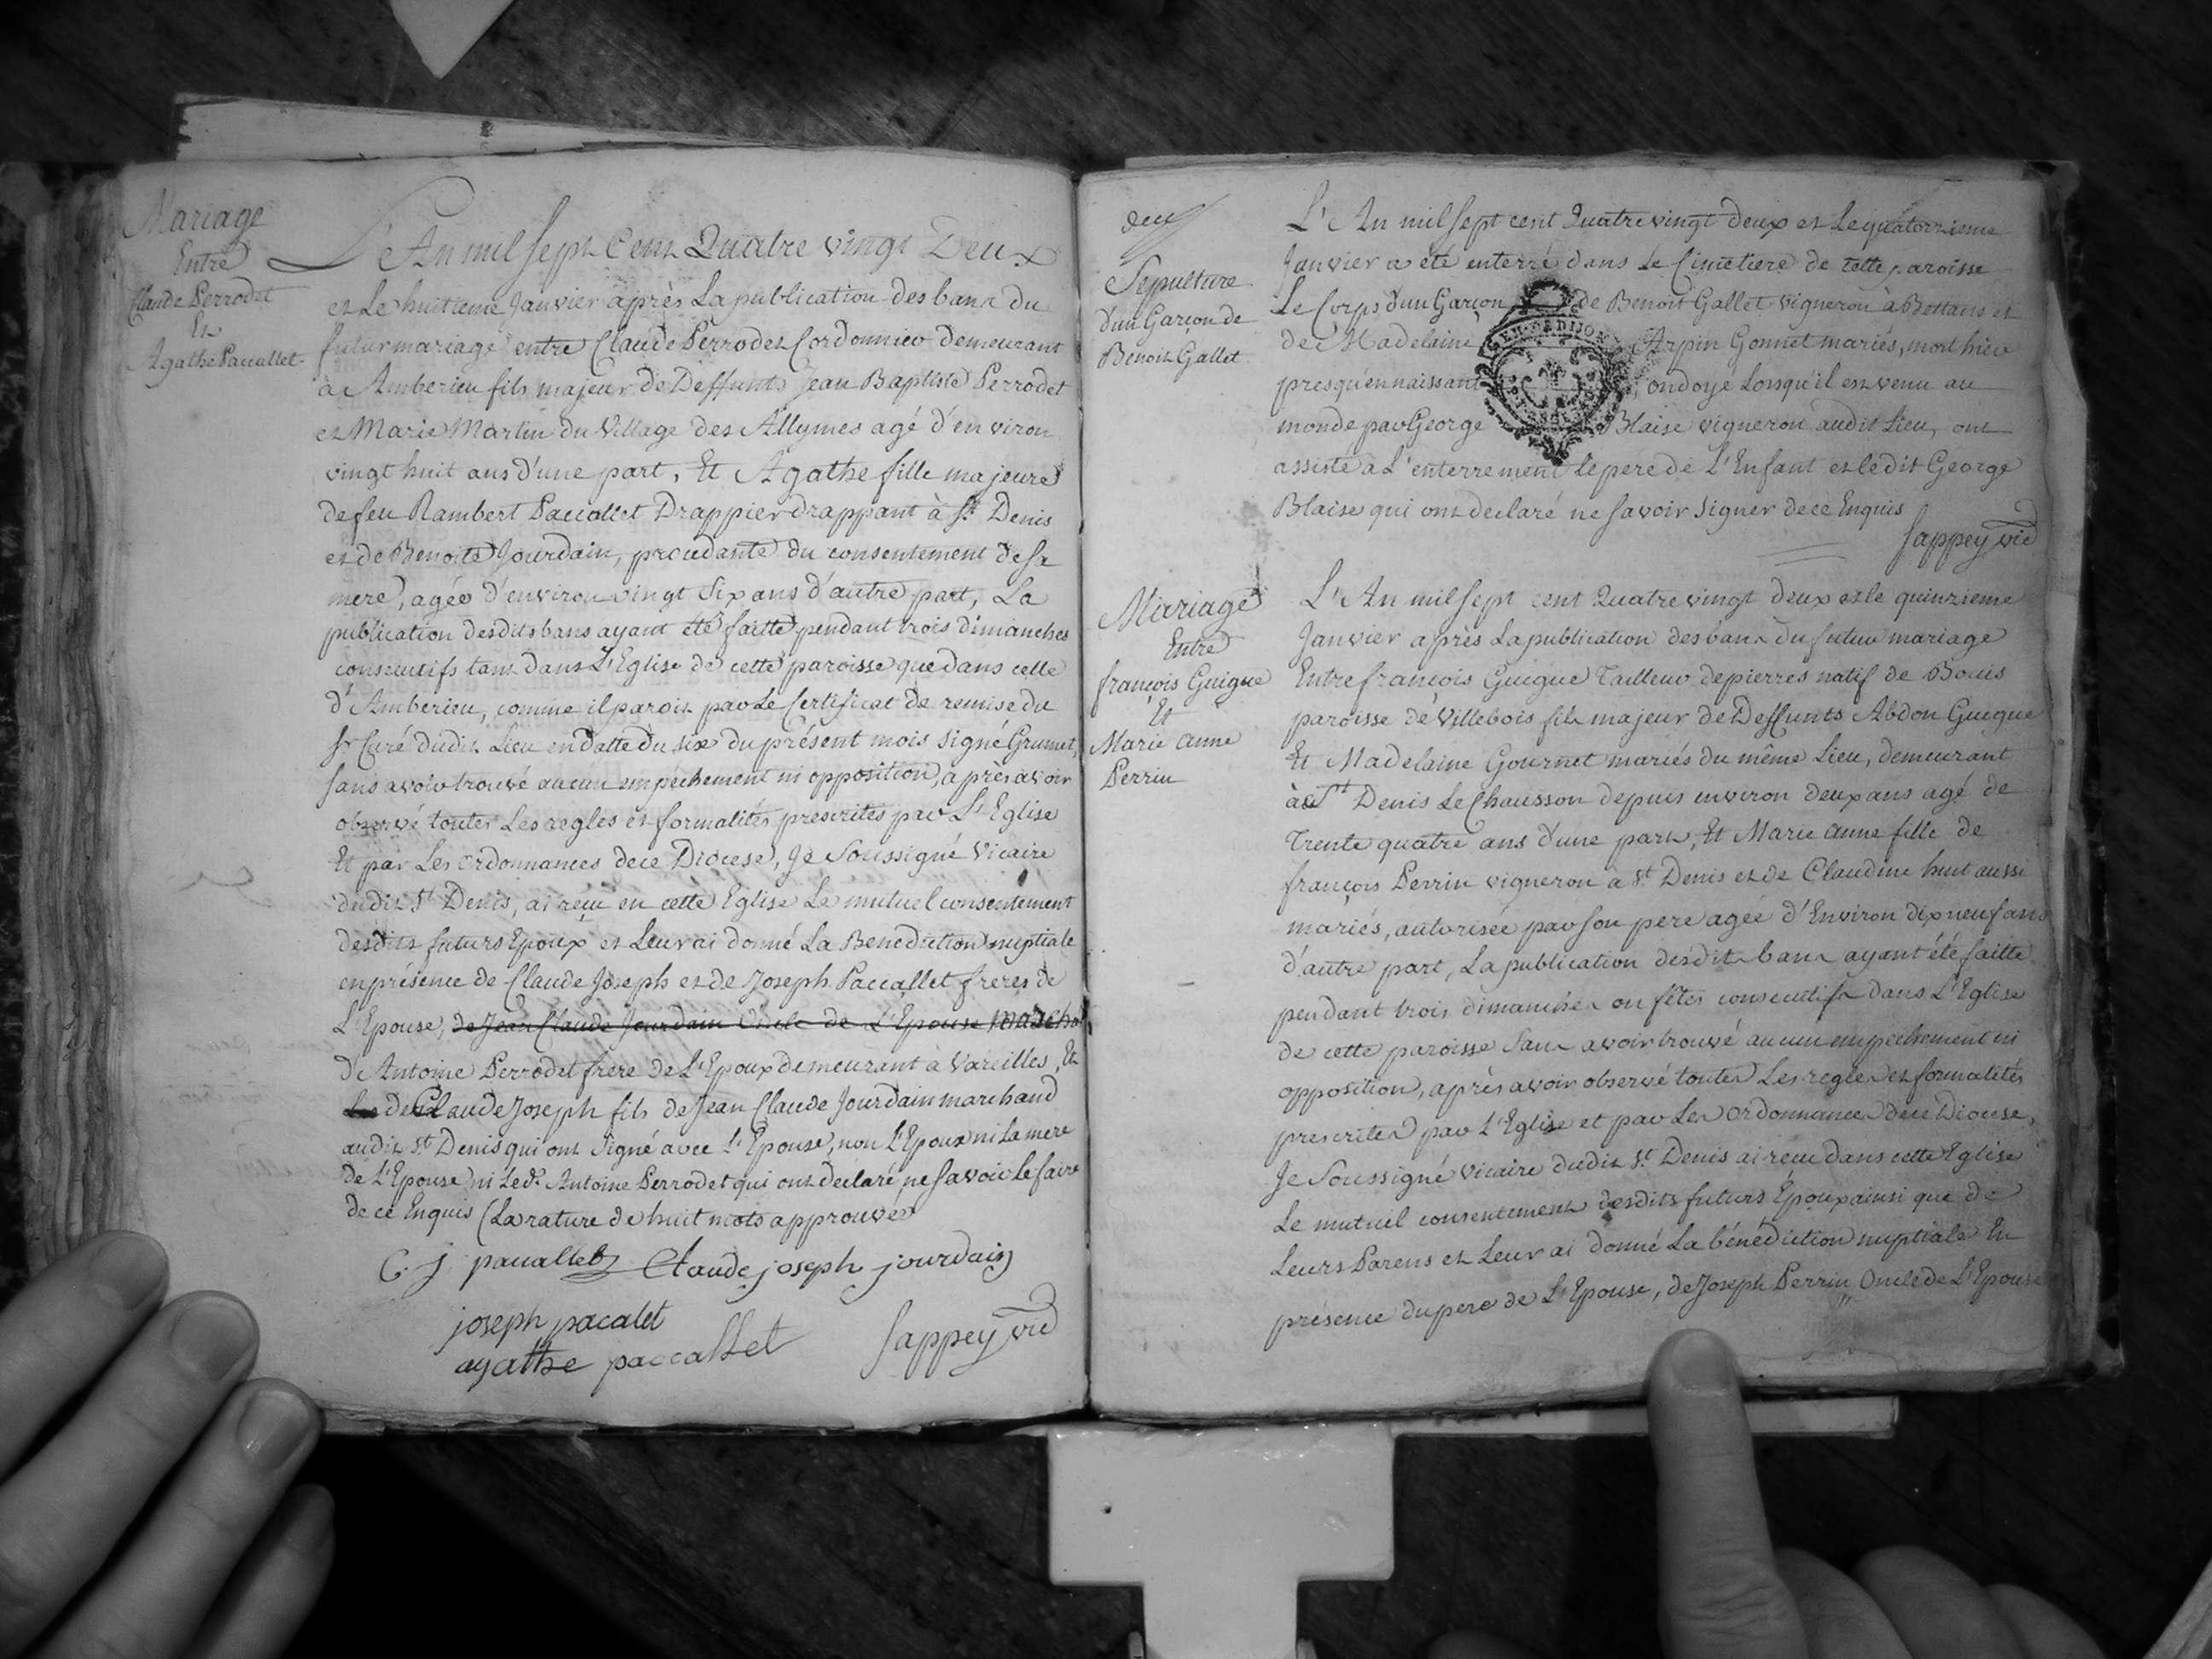 Mariage
Entre
Claude Perrodet
Et
Agathe Paccallet
L'An mil sept Cent Quatre vingt Deux
et Le huitieme Janvier après La publication des bans du
futur mariage entre Claude Perrodet Cordonnier demeurant
à Amberieu fils majeur de Deffunts Jean Baptiste Perrodet
et Marie Martin du Village des Allymes agé d'environ
vingt huit ans d'une part, Et Agathe fille majeure
de feu Rambert Paccallet Drappier drappant à St Denis
et de Benoite Jourdain, procedante du consentement de sa
mere, agée d'environ vingt Six ans d'autre part, La
publication desdits bans ayant été faitte pendant trois dimanches
consecutifs tant dans L'Eglise de cette paroisse que dans celle
d'Amberieu, comme il paroit par Le Certificat de remise du
Sr Curé dudit Lieu en datte du six du présent mois signé Grumet,
sans avoir trouvé aucun empéchement ni opposition, après avoir
observé toutes Les regles et formalités prescrites par L'Eglise
Et par Les ordonnances de ce Diocese, Je Soussigné Vicaire
dudit St Denis, ai reçu en cette Eglise Le mutuel consentement
desdits futurs Epoux et Leur ai donné La Benediction nuptiale
en présence de Claude Joseph et de Joseph Paccallet freres de
L'Epouse, de Jean Claude Jourdain Oncle de L'Epouse marchd
d'Antoine Perrodet frere de L'Epoux demeurant à Vareilles, Et
de Claude Joseph fils de Jean Claude Jourdain marchand
audit St Denis qui ont signé avec L'Epouse, non L'Epoux ni La mere
de L'Epouse ni Led. Antoine Perrodet qui ont declaré ne savoir le faire
de ce Enquis (La rature de huit mots approuvée
C. J. paccallet Claude joseph jourdain
joseph pacalet
agathe paccallet Sappey vic
deux
Sepulture
d'un Garçon de
Benoit Gallet
L'An mil sept cent Quatre vingt deux et Le quatorzieme
Janvier a été enterré dans Le Cimetiere de cette paroisse
Le Corps d'un Garçon de Benoit Gallet vigneron à Bettans et
de Madelaine Arpin Gonnet mariés, mort hier
presqu'en naissant, ondoyé Lorsqu'il est venu au
monde par George Blaise vigneron audit Lieu, ont
assisté à L'enterrement le pere de L'Enfant et ledit George
Blaise qui ont declaré ne savoir signer de ce Enquis
Sappey vic
Mariage
Entre
françois Guigue
Et
Marie anne
Perrin
L'An mil sept cent Quatre vingt deux et le quinzieme
Janvier après La publication des bans du futur mariage
Entre françois Guigue Tailleur de pierres natif de Bouis
paroisse de Villebois fils majeur de Deffunts Abdon Guigue
Et Madelaine Gournet mariés du même Lieu, demeurant
à St Denis Le Chausson depuis environ deux ans agé de
Trente quatre ans d'une part, Et Marie anne fille de
françois Perrin vigneron à St Denis et de Claudine huit aussi
mariés, autorisée par son pere agée d'Environ dix neuf ans
d'autre part, La publication desdits bans ayant été faitte
pendant trois dimanches ou fêtes consecutifs dans L'Eglise
de cette paroisse sans avoir trouvé aucun empéchement ni
opposition, après avoir observé toutes Les regles et formalités
prescrites par L'Eglise et par Les ordonnances de ce Diocese,
Je Soussigné vicaire dudit St Denis ai reçu dans cette Eglise
Le mutuel consentement desdits futurs Epoux ainsi que de
Leurs Parens et Leur ai donné La bénédiction nuptiale En
présence du pere de L'Epouse, de Joseph Perrin Oncle de L'Epouse